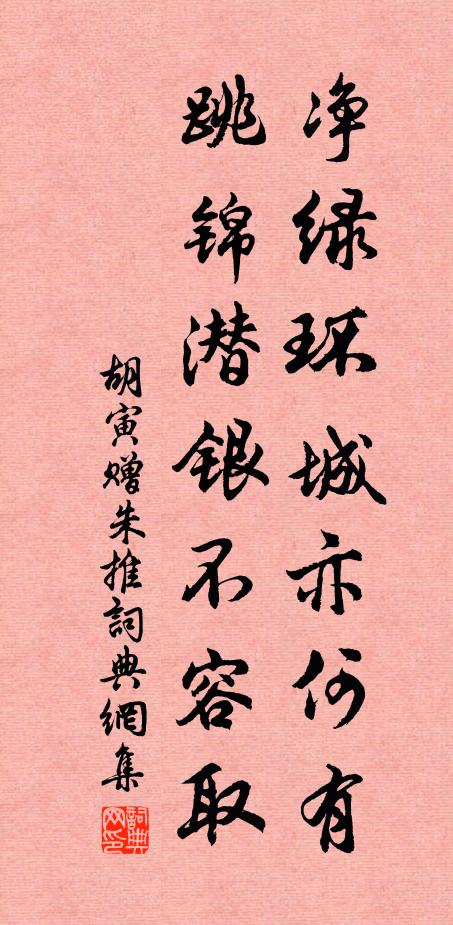 净绿环城亦何有
跳锦潜银不容取
胡寅赠朱推詞典網集
詞典网印